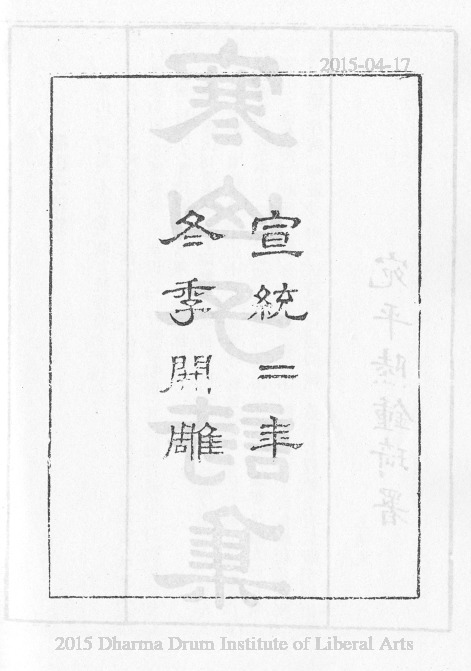 2015-04-17
宣統二年
冬季開雕
寒山子詩集
宛平陸鍾琦署
2015 Dharma Drum Institute of Liberal Arts